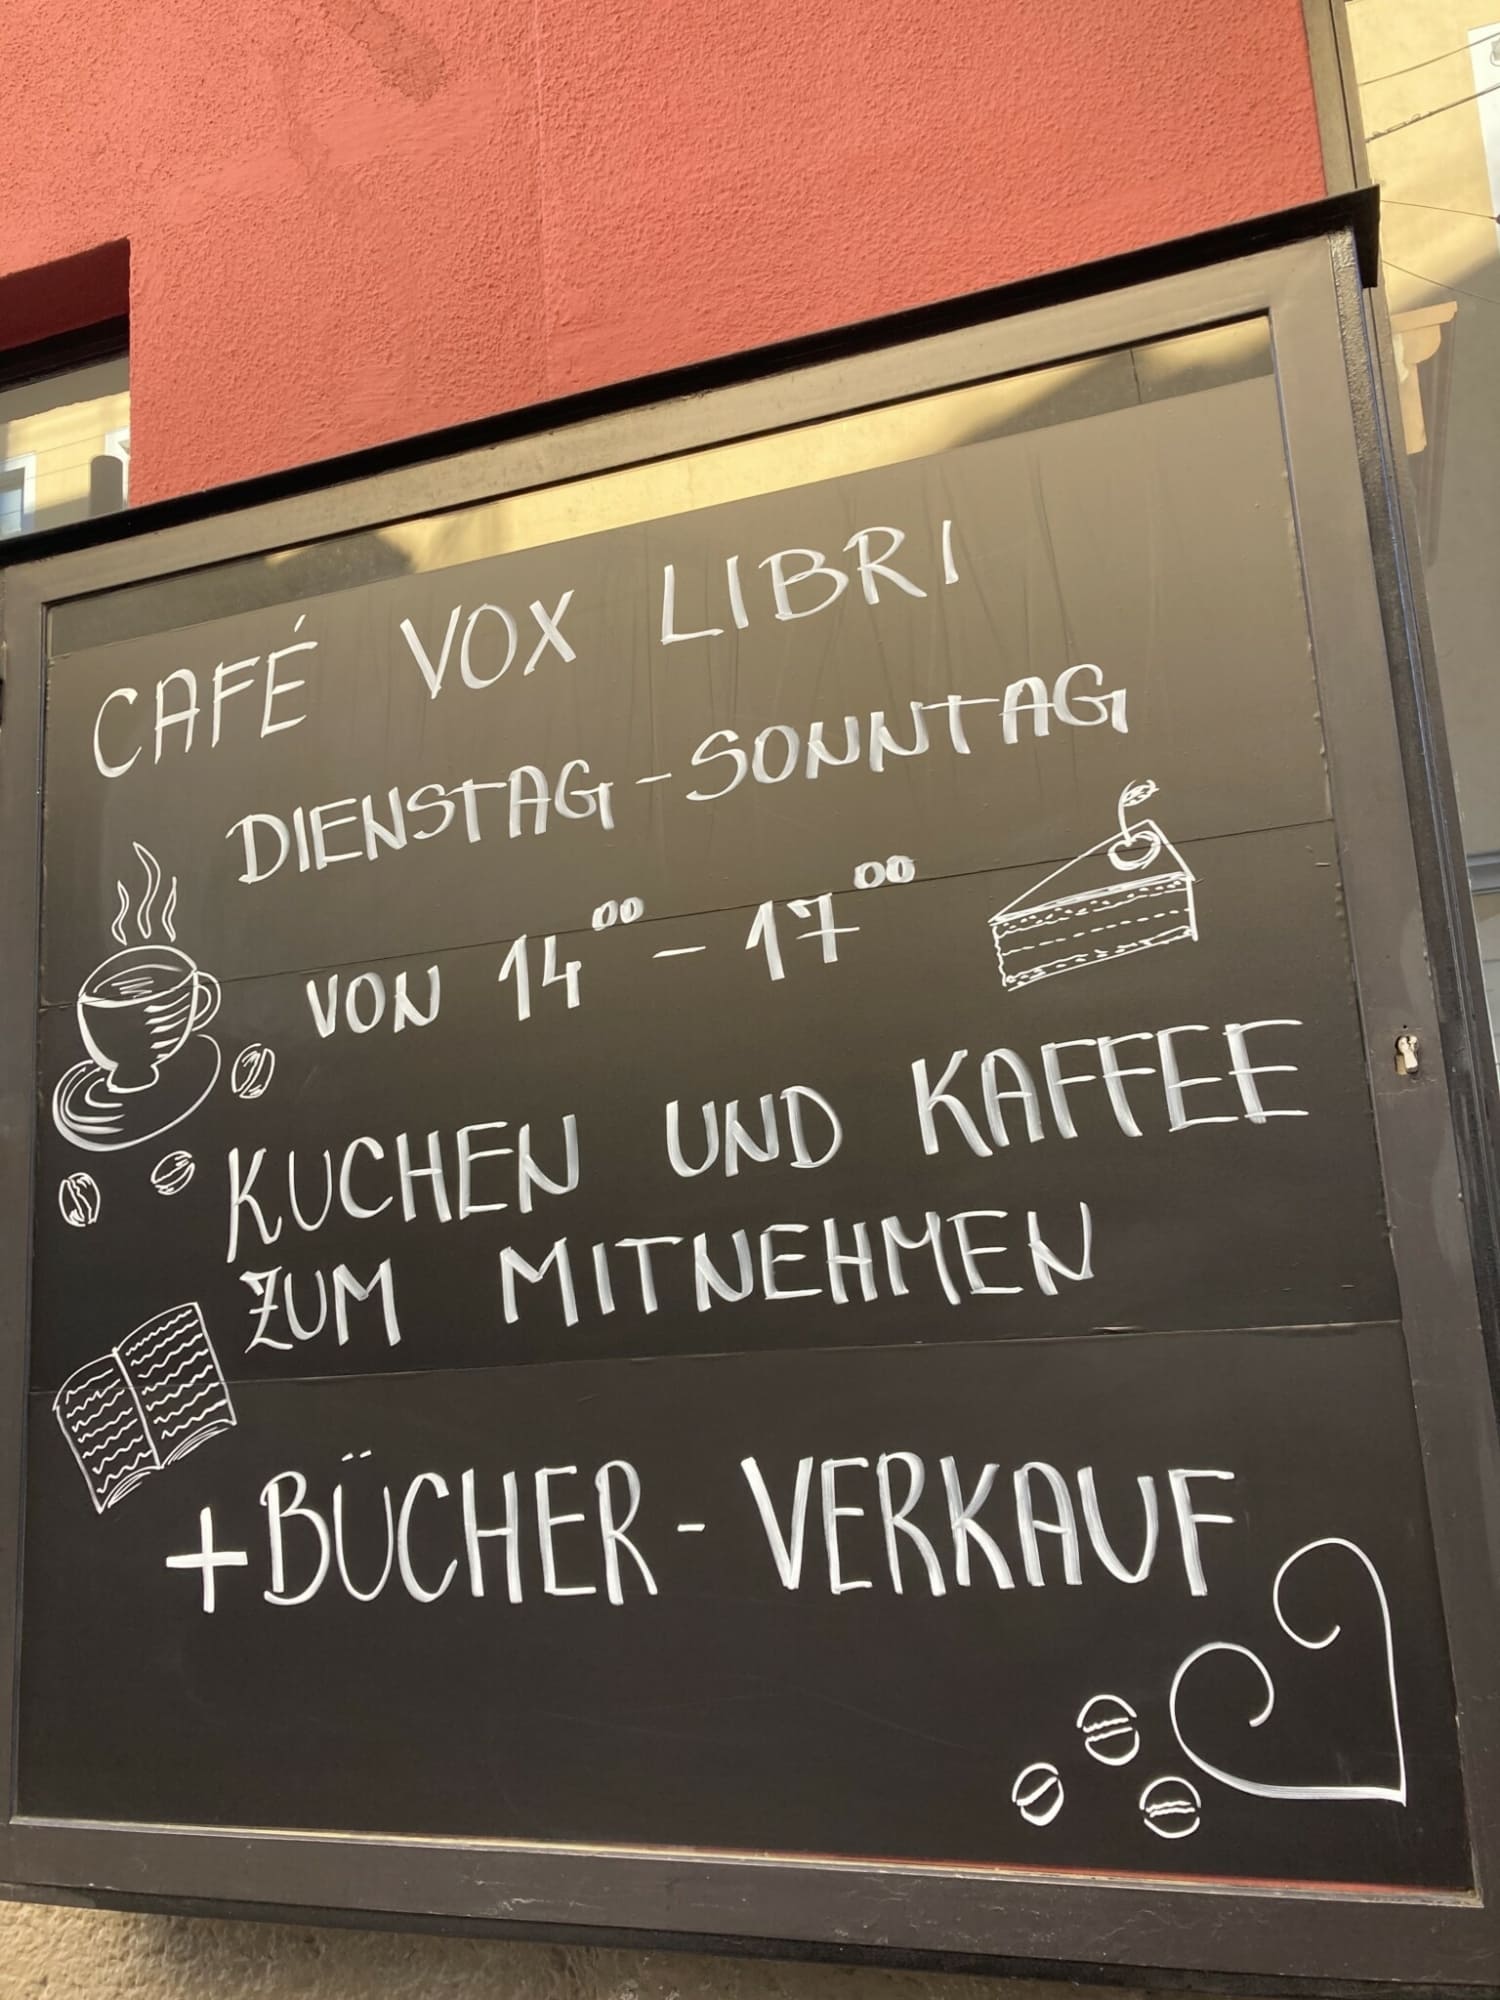 CAFÉ VOX LIBRI
DIENSTAG - SONNTAG
VON 14⁰⁰ - 17⁰⁰
KUCHEN UND KAFFEE
ZUM MITNEHMEN
+ BÜCHER - VERKAUF